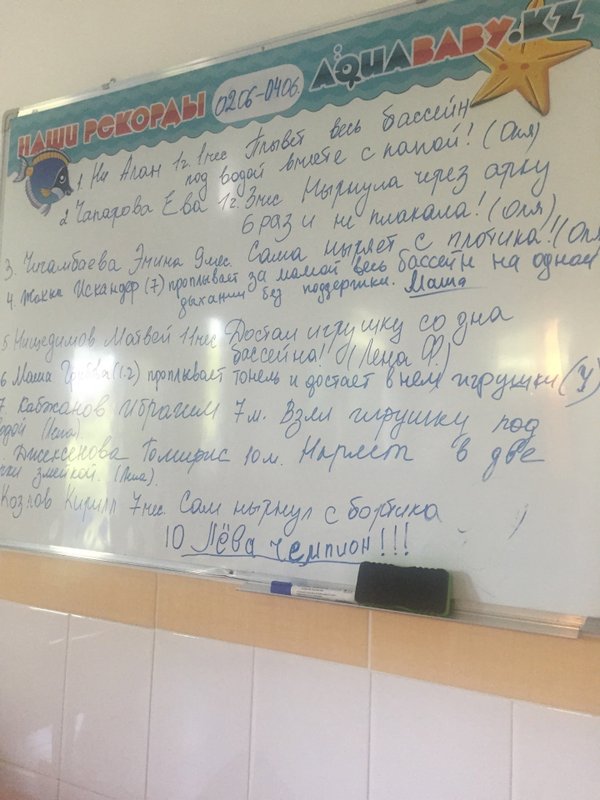 НАШИ РЕКОРДЫ 0206-0406. AQUABABY.KZ
1. Ни Алан 1г. 1мес Плывет весь бассейн
под водой вместе с папой! (Оля)
2 Чапарова Ева 1г. 3мес Нырнула через арку
6 раз и не плакала! (Оля)
3. Эмина 9мес. Сама ныряет с плотика! (Оля
4. Искандер (7) проплывает за мамой весь бассейн на одном
дыхании без поддержки. Маша
5 Матвей 11мес Достал игрушку со дна
бассейна! (Лена Ф)
6 Маша (1.2) проплывает тонель и достает в нем игрушки (У)
7 Кабжанов Ибрагим 7м. Взял игрушку под
водой
Томирис 10м. в две
змейкой.
Козлов Кирилл 7мес. Сам нырнул с бортика
10 Лёва чемпион!!!